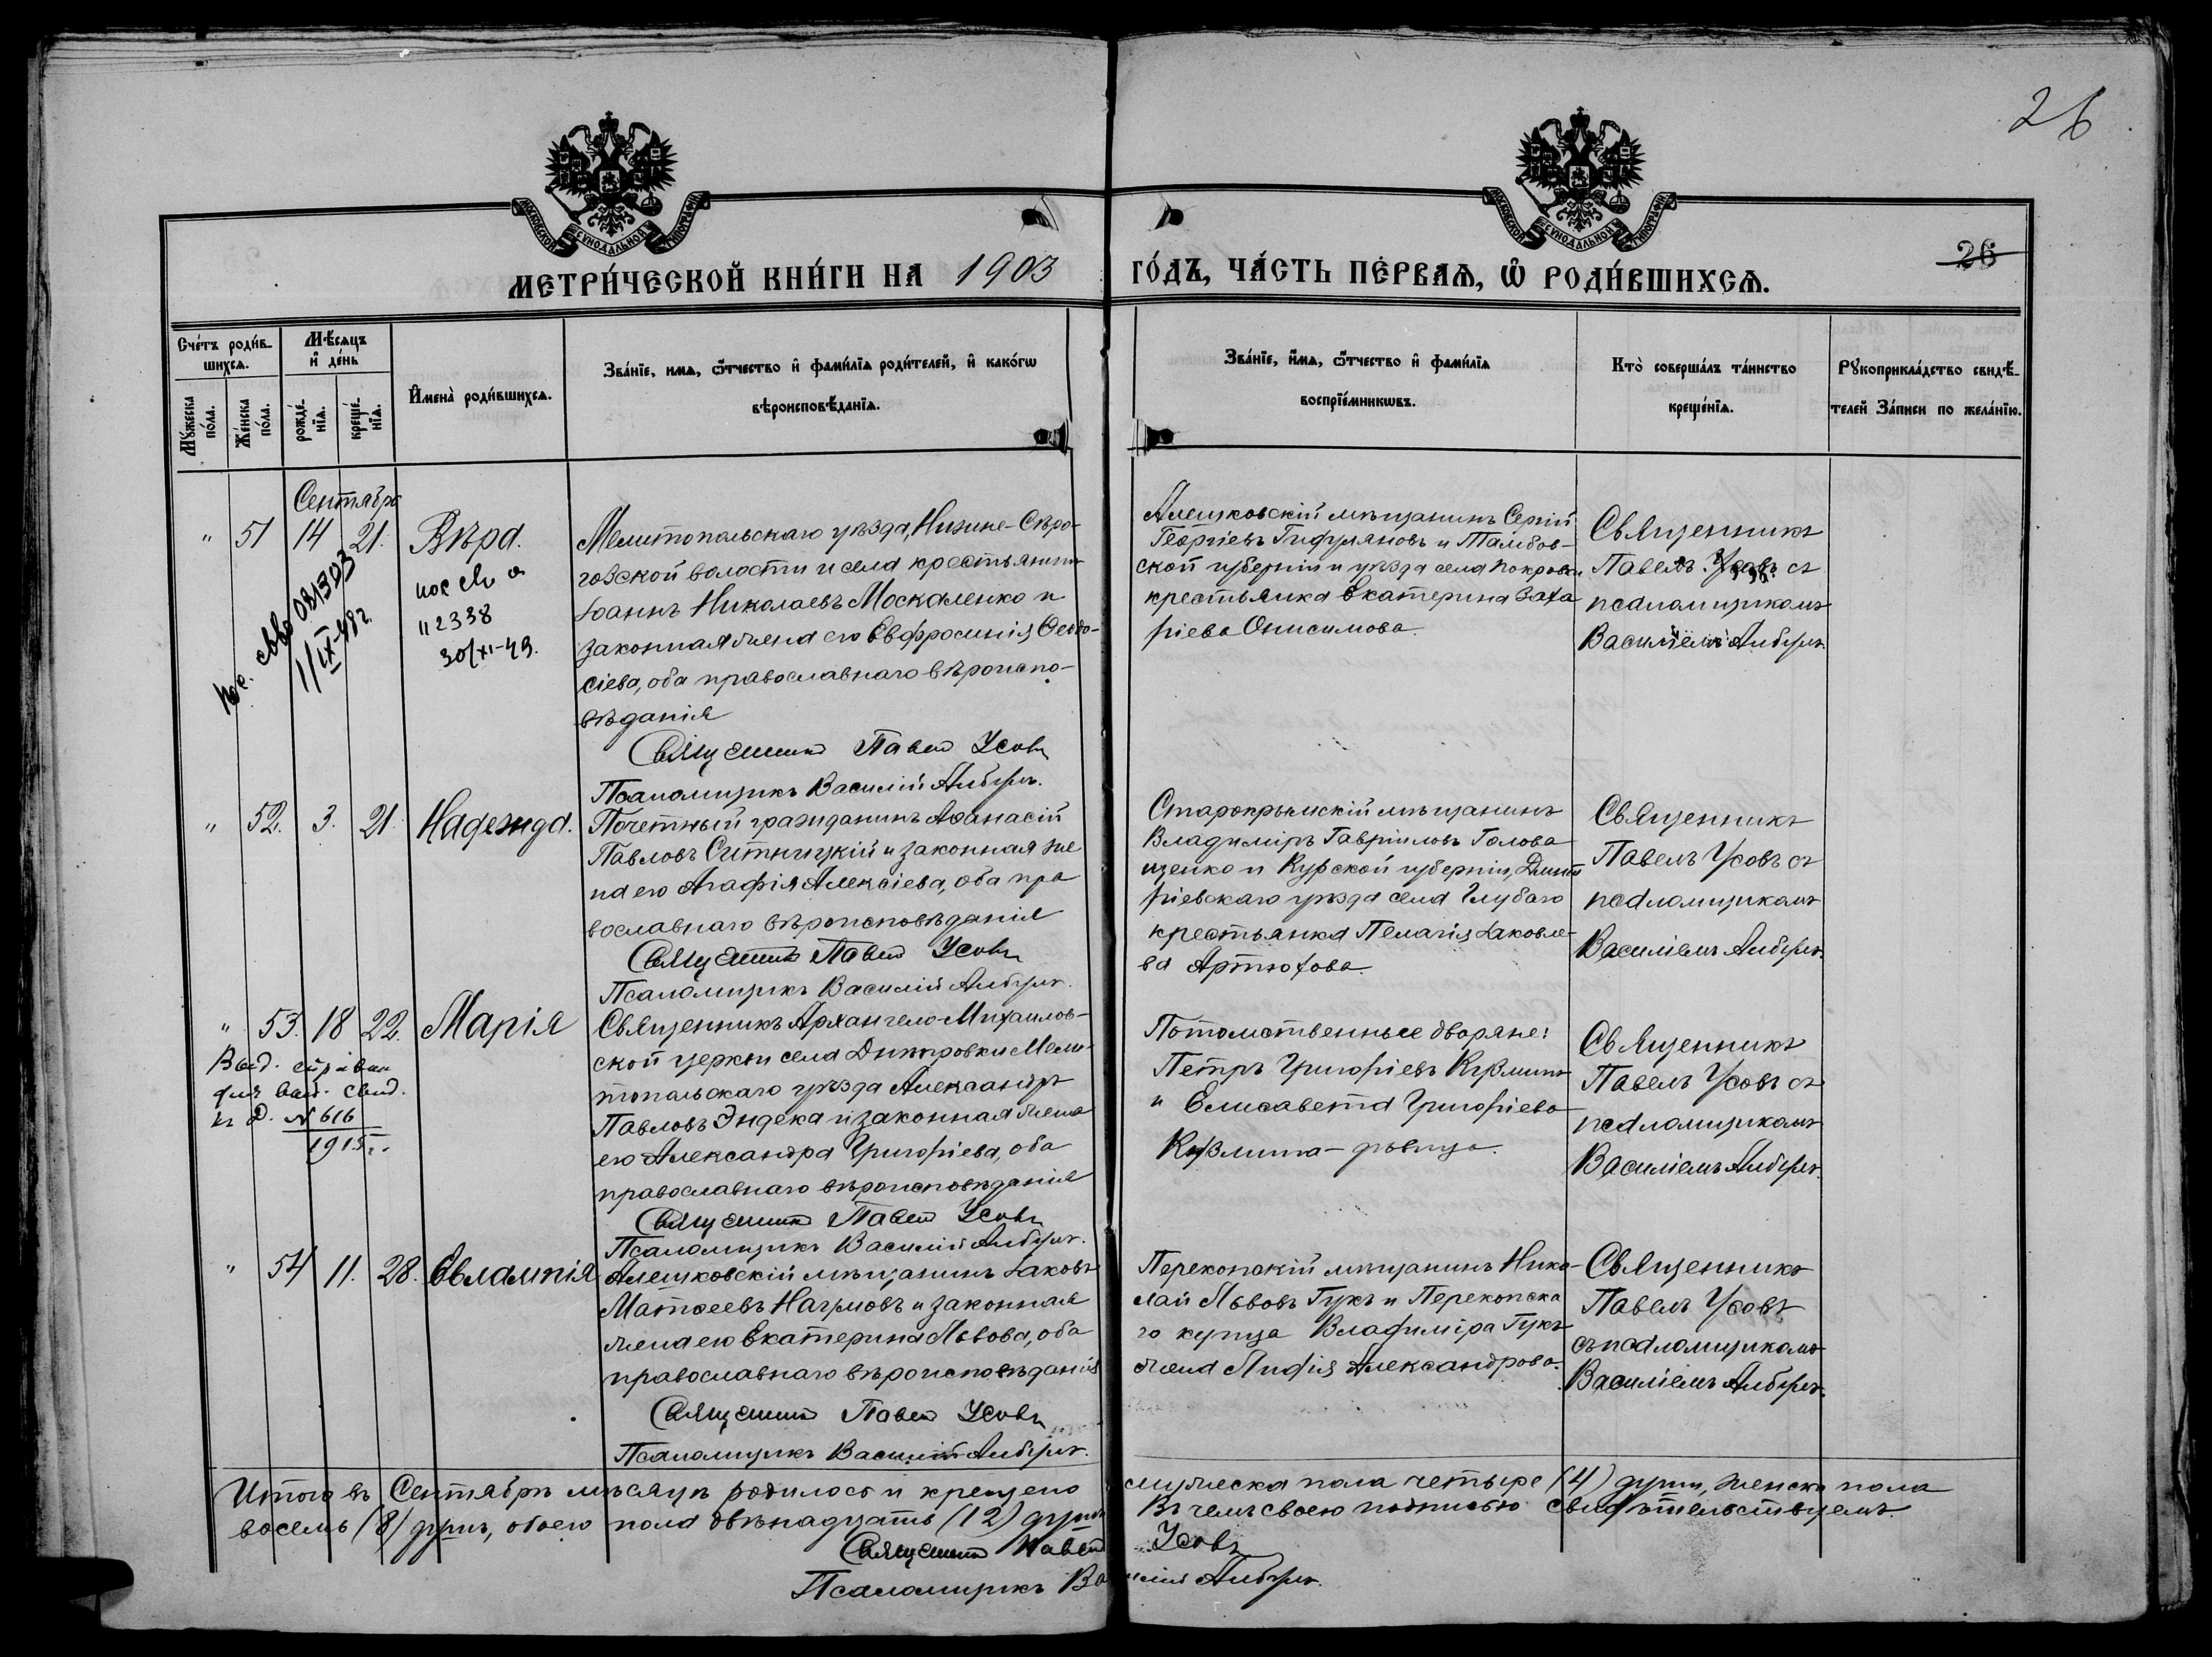 26
МОСКОВСКОЙ СѴНОДАЛЬНОЙ ТИПОГРАФІИ
МОСКОВСКОЙ СѴНОДАЛЬНОЙ ТИПОГРАФІИ
26
МЕТРИ́ЧЕСКОЙ КНИ́ГИ НА 1903 ГО́ДЪ, ЧА́СТЬ ПЕ́РВАѦ, Ѡ҆ РОДИ́ВШИХСѦ.
Сче́тъ роди́в-
шихсѧ.
Мꙋ́жеска по́ла.
Же́нска по́ла.
Мѣ́сѧцъ
и҆ де́нь
рожде́-
нїѧ.
креще́-
нїѧ.
И҆мена̀ роди́вшихсѧ.
Зва́нїе, и҆мѧ, ѻ҆́тчество и҆ фами́лїѧ роди́телей, и҆ како́гѡ
вѣроисповѣ́данїѧ.
Зва́нїе, и҆́мѧ, ѻ҆́тчество и҆ фами́лїѧ
воспрїе́мникѡвъ.
Кто̀ соверша́лъ та́инство
креще́нїѧ.
Рꙋкоприкла́дство свидѣ́-
телей за́писи по жела́нїю.
Сентябрь
" 51 14 21. Вѣра.
2338
30/XI-49.
11/IX-48г.
Мелитопольскаго уѣзда, Нижне-Сѣро-
гозской волости и села крестьянинъ
Іоаннъ Николаевъ Москаленко и
законная жена его Евфросинія Ѳеодо-
сіева, оба православнаго вѣроиспо-
вѣданія
Священникъ Павелъ Усовъ
Псаломщикъ Василій
Алешковскій мѣщанинъ Сергій
Георгіевъ и Тамбов-
ской губерніи и уѣзда села Покровки
крестьянка Екатерина Заха
ріева Онисимова.
Священникъ
Павелъ Усовъ съ
псаломщикомъ
Василіемъ
" 52. 3. 21. Надежда.
Почетный гражданинъ Аѳанасій
Павловъ Ситницкій и законная же
на его Агафія Алексіева, оба пра
вославнаго вѣроисповѣданія
Священникъ Павелъ Усовъ
Псаломщикъ Василій
Старокрымскій мѣщанинъ
Владиміръ Гавріиловъ Голова
щенко и Курской губерніи, Дмит
ріевскаго уѣзда села Глубаго
крестьянка Пелагія Іаковле-
ва Артюхова.
Священникъ
Павелъ Усовъ съ
псаломщикомъ
Василіемъ
" 53. 18 22. Марія
Выд. справка
для выд. свид.
N 616
1915 г.
Священникъ Архангело-Михаилов-
ской церкви села Днѣпровки Мели-
топольскаго уѣзда Александръ
Павловъ Эндека и законная жена
его Александра Григоріева, оба
православнаго вѣроисповѣданія
Священникъ Павелъ Усовъ
Псаломщикъ Василій
Потомственные дворяне:
Петръ Григоріевъ Кузминъ
и Елисавета Григоріева
Кузмина - дѣвица.
Священникъ
Павелъ Усовъ съ
псаломщикомъ
Василіемъ
" 54 11. 28. Евлампія
Алешковскій мѣщанинъ Іаковъ
Матѳеевъ Наумовъ и законная
жена его Екатерина Львова, оба
православнаго вѣроисповѣданія
Священникъ Павелъ Усовъ
Псаломщикъ Василій
Перекопскій мѣщанинъ Нико-
лай Львовъ Гукъ и Перекопска
го купца Владиміра Гукъ
жена Лидія Александрова.
Священникъ
Павелъ Усовъ
съ псаломщикомъ
Василіемъ
Итого въ Сентябрѣ мѣсяцѣ родилось и крещено мужеска пола четыре (4) души, женска пола
восемь (8) душъ, обоего пола двѣнадцать (12) душъ. Въ чемъ своею подписью свидѣтельствуемъ.
Священникъ Павелъ Усовъ
Псаломщикъ Василій